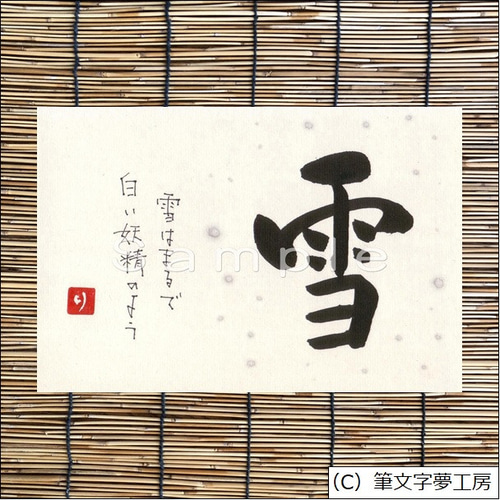 雪
雪はまるで
白い妖精のよう
り
Sample
(C) 筆文字夢工房